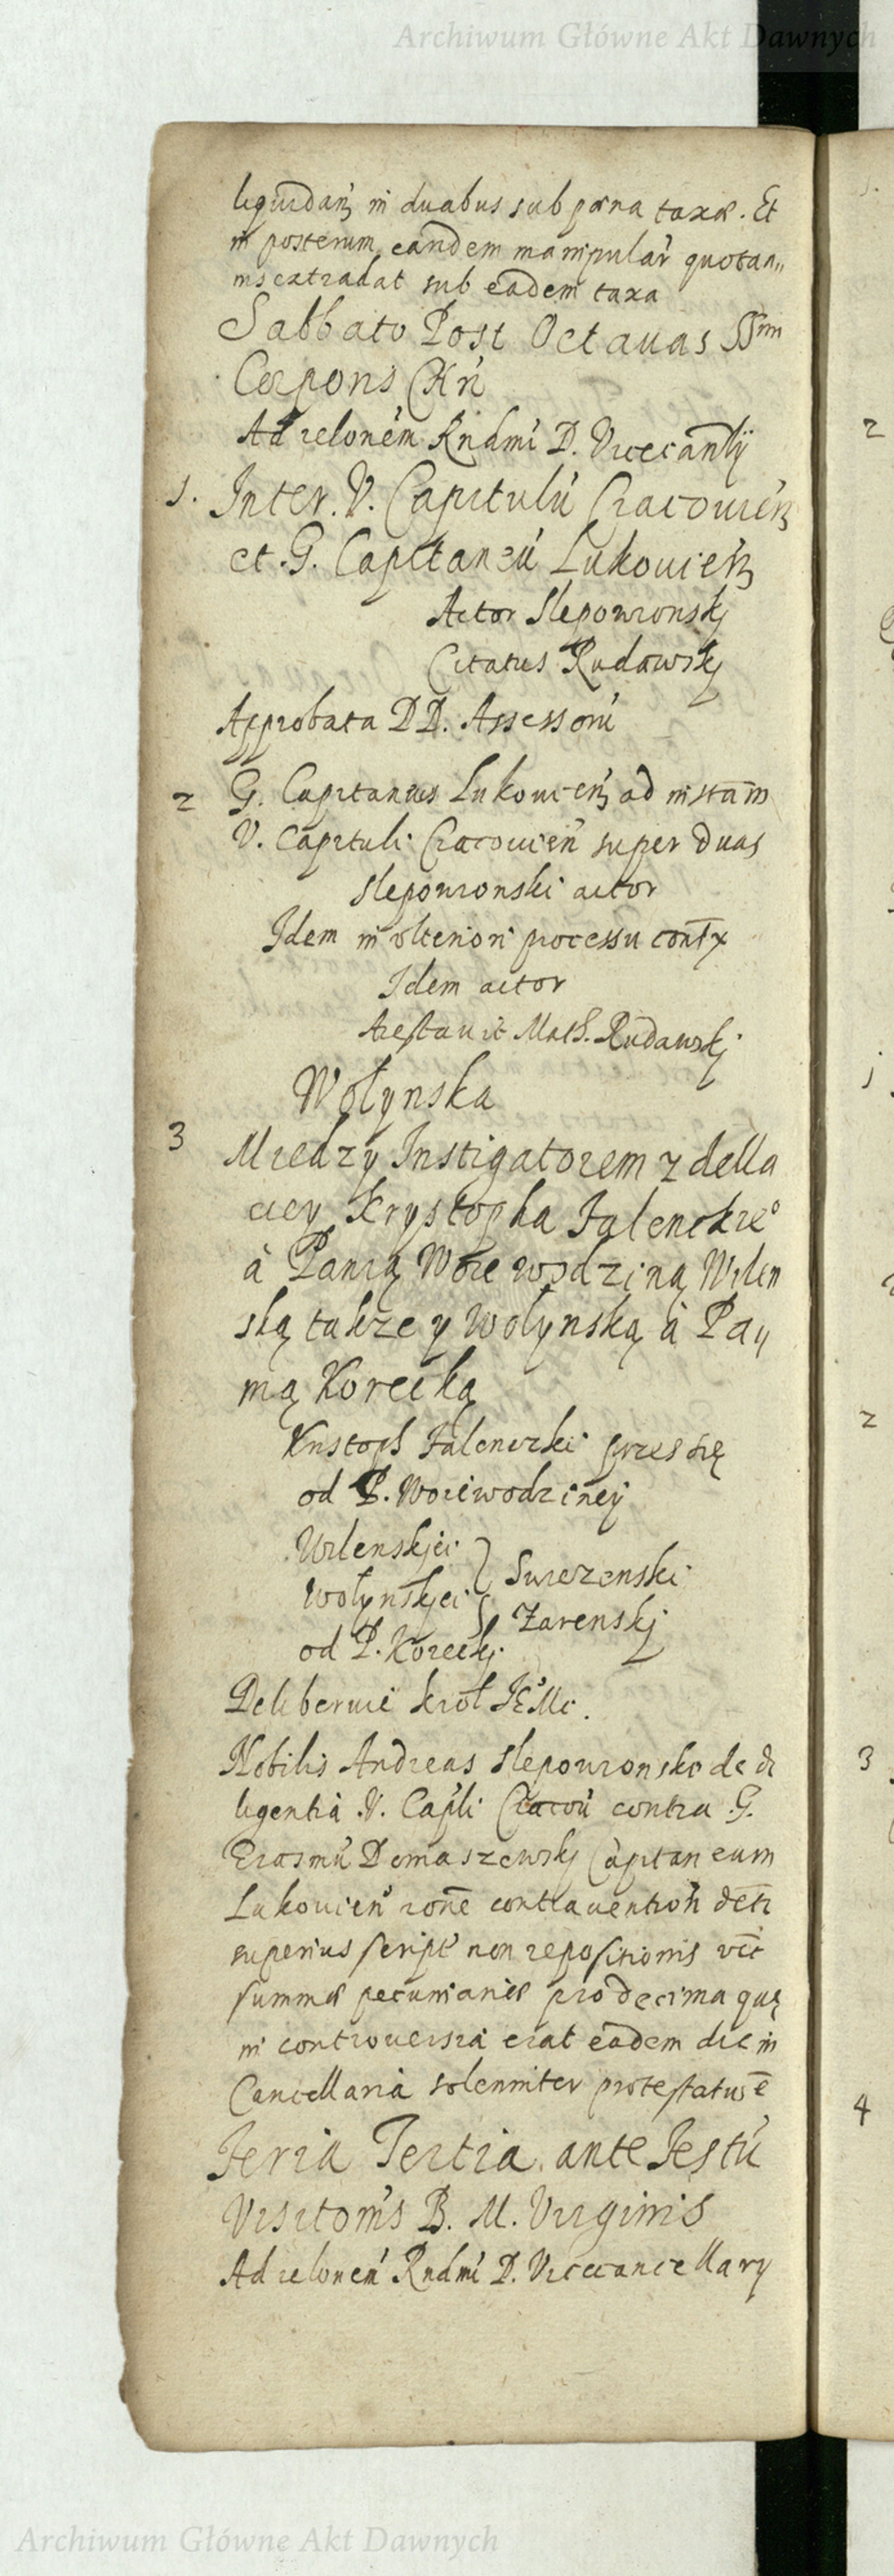 Archiwum Główne Akt Dawnych
liquidań in duabus sub pœna taxæ. Et
in posterum eandem manipular̃ quotan„
nis extradat sub eadem taxa
Sabbato Post Octauas SSmi
Corporis Chri
Ad relonem Rndmi D. Vicecanlÿ
1. Inter. V. Capitulu Cracouien
et. G. Capitaneu Lukouien
Actor Slepowronskj
Citatus Rudawskj
Approbata DD. Assessorũ
2 G. Capitaneus Lukouien ad instam
V. Capituli Cracouien super duas
slepowronski actor
Idem in vlteriori processu contx
Idem actor
Math. Rudawskj
Wołynska
3 Miedzy Instigatorem z della
ciey Krystopha
à Panią Woiewodziną Wilen
ską takze y Wołynską à Pay
nią Korecką
Kristoph przes się
od P. Woiewodziney
Wilenskiei
Wołynskiei
od P. Koreckj.
Deliberuie krol JEoMc.
Nobilis Andreas slepowronski de di
ligentia V. Capli Cracou contra .G.
Erasmu Domaszewskj Capitaneum
Lukouien rone contrauention deti
superius script non repositionis vit
summæ pecuniariæ pro decima quę
in controuersia erat eadem die in
Cancellaria solenniter protestatus e
Feria Tertia ante Festu
Visitonis B. M. Virginis
Ad relonem Rndmi D. Vicecancellary
2
2
3
4
Archiwum Główne Akt Dawnych